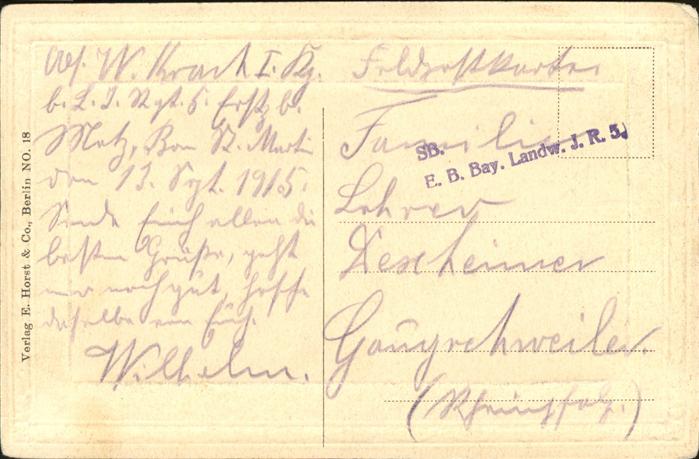 Abs. W. Krach I. Kp.
b. L. I. Rgt. 5. Erstz. b.
Metz, Ban St. Martin
den 13. Sept. 1915.
Sende Euch allen die
besten Grüße, geht
mir noch gut, hoffe
dasselbe von Euch.
Wilhelm.
Feldpostkarte
Familie
Lehrer
Dexheimer
Gaugrehweiler
(Rheinpfalz.)
SB.
E. B. Bay. Landw. J. R. 5.
Verlag E. Horst & Co., Berlin NO. 18